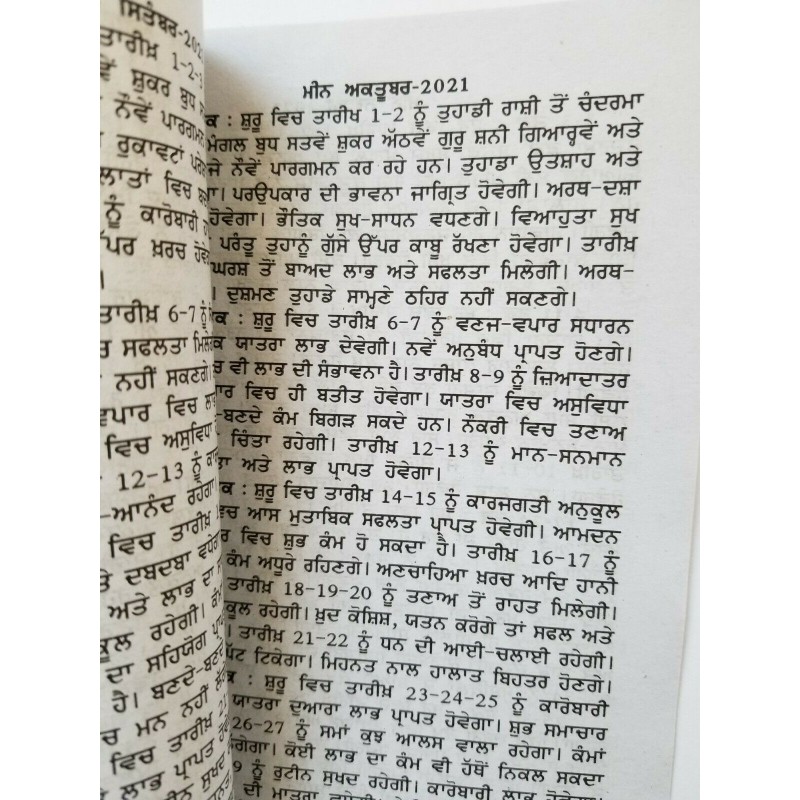 ਸਿਤੰਬਰ-202
ਤਾਰੀਖ਼ 1-2-3
ਵੇਂ ਸ਼ੁਕਰ ਬੁਧ
ਨੌਵੇਂ ਪਾਰਗਮਨ
ਰੁਕਾਵਟਾਂ
ਲਾਤਾਂ ਵਿਚ
ਨੂੰ ਕਾਰੋਬਾਰੀ
ੱਪਰ ਖ਼ਰਚ ਹੋਵੇ
।
ਤਾਰੀਖ਼ 6-7 ਨੂੰ
ਚ ਸਫਲਤਾ ਮਿਲੇ
ਨਹੀਂ ਸਕਣਗੇ।
ਵਪਾਰ ਵਿਚ ਲਾਭ
ਵਿਚ ਅਸੁਵਿਧਾ
12-13 ਨੂੰ ਕਾ
-ਆਨੰਦ ਰਹੇਗਾ।
ਵਿਚ ਤਾਰੀਖ਼
ਤੇ ਦਬਦਬਾ ਵਧੇਗਾ
ਅਤੇ ਲਾਭ ਦਾ
ਕੂਲ ਰਹੇਗੀ। ਕੰਮ
ਦਾ ਸਹਿਯੋਗ ਪ੍ਰਾ
ਹੈ। ਬਣਦੇ-ਬਣਦੇ
ਚ ਮਨ ਨਹੀਂ
ਵਿਚ ਤਾਰੀਖ਼ 21
ਲਾਭ ਪ੍ਰਾਪਤ
ਮੀਨ ਅਕਤੂਬਰ-2021
ਕ : ਸ਼ੁਰੂ ਵਿਚ ਤਾਰੀਖ਼ 1-2 ਨੂੰ ਤੁਹਾਡੀ ਰਾਸ਼ੀ ਤੋਂ ਚੰਦਰਮਾ
ਮੰਗਲ ਬੁਧ ਸਤਵੇਂ ਸ਼ੁਕਰ ਅੱਠਵੇਂ ਗੁਰੂ ਸ਼ਨੀ ਗਿਆਰ੍ਹਵੇਂ ਅਤੇ
ਜੇ ਨੌਵੇਂ ਪਾਰਗਮਨ ਕਰ ਰਹੇ ਹਨ। ਤੁਹਾਡਾ ਉਤਸ਼ਾਹ ਅਤੇ
। ਪਰਉਪਕਾਰ ਦੀ ਭਾਵਨਾ ਜਾਗ੍ਰਿਤ ਹੋਵੇਗੀ। ਅਰਥ-ਦਸ਼ਾ
ਹੋਵੇਗਾ। ਭੌਤਿਕ ਸੁਖ-ਸਾਧਨ ਵਧਣਗੇ। ਵਿਆਹੁਤਾ ਸੁਖ
ਪਰੰਤੂ ਤੁਹਾਨੂੰ ਗੁੱਸੇ ਉੱਪਰ ਕਾਬੂ ਰੱਖਣਾ ਹੋਵੇਗਾ। ਤਾਰੀਖ਼
ਘਰਸ਼ ਤੋਂ ਬਾਅਦ ਲਾਭ ਅਤੇ ਸਫਲਤਾ ਮਿਲੇਗੀ। ਅਰਥ-
। ਦੁਸ਼ਮਣ ਤੁਹਾਡੇ ਸਾਮ੍ਹਣੇ ਠਹਿਰ ਨਹੀਂ ਸਕਣਗੇ।
ਕ : ਸ਼ੁਰੂ ਵਿਚ ਤਾਰੀਖ਼ 6-7 ਨੂੰ ਵਣਜ-ਵਪਾਰ ਸਧਾਰਨ
ਕ ਯਾਤਰਾ ਲਾਭ ਦੇਵੇਗੀ। ਨਵੇਂ ਅਨੁਬੰਧ ਪ੍ਰਾਪਤ ਹੋਣਗੇ।
ਚ ਵੀ ਲਾਭ ਦੀ ਸੰਭਾਵਨਾ ਹੈ। ਤਾਰੀਖ਼ 8-9 ਨੂੰ ਜ਼ਿਆਦਾਤਰ
ਾਰ ਵਿਚ ਹੀ ਬਤੀਤ ਹੋਵੇਗਾ। ਯਾਤਰਾ ਵਿਚ ਅਸੁਵਿਧਾ
-ਬਣਦੇ ਕੰਮ ਬਿਗੜ ਸਕਦੇ ਹਨ। ਨੌਕਰੀ ਵਿਚ ਤਣਾਅ
ਚਿੰਤਾ ਰਹੇਗੀ। ਤਾਰੀਖ਼ 12-13 ਨੂੰ ਮਾਨ-ਸਨਮਾਨ
ਤਾ ਅਤੇ ਲਾਭ ਪ੍ਰਾਪਤ ਹੋਵੇਗਾ।
ਕ : ਸ਼ੁਰੂ ਵਿਚ ਤਾਰੀਖ਼ 14-15 ਨੂੰ ਕਾਰਜਗਤੀ ਅਨੁਕੂਲ
ਵਿਚ ਆਸ ਮੁਤਾਬਿਕ ਸਫਲਤਾ ਪ੍ਰਾਪਤ ਹੋਵੇਗੀ। ਆਮਦਨ
ਰ ਵਿਚ ਸ਼ੁਭ ਕੰਮ ਹੋ ਸਕਦਾ ਹੈ। ਤਾਰੀਖ਼ 16-17 ਨੂੰ
ਕੰਮ ਅਧੂਰੇ ਰਹਿਣਗੇ। ਅਣਚਾਹਿਆ ਖ਼ਰਚ ਆਦਿ ਹਾਨੀ
ਤਾਰੀਖ਼ 18-19-20 ਨੂੰ ਤਣਾਅ ਤੋਂ ਰਾਹਤ ਮਿਲੇਗੀ।
ਕੂਲ ਰਹੇਗੀ। ਖ਼ੁਦ ਕੋਸ਼ਿਸ਼, ਯਤਨ ਕਰੋਗੇ ਤਾਂ ਸਫਲ ਅਤੇ
। ਤਾਰੀਖ਼ 21-22 ਨੂੰ ਧਨ ਦੀ ਆਈ-ਚਲਾਈ ਰਹੇਗੀ।
ਘੱਟ ਟਿਕੇਗਾ। ਮਿਹਨਤ ਨਾਲ ਹਾਲਾਤ ਬਿਹਤਰ ਹੋਣਗੇ।
ਕ : ਸ਼ੁਰੂ ਵਿਚ ਤਾਰੀਖ਼ 23-24-25 ਨੂੰ ਕਾਰੋਬਾਰੀ
ਯਾਤਰਾ ਦੁਆਰਾ ਲਾਭ ਪ੍ਰਾਪਤ ਹੋਵੇਗਾ। ਸ਼ੁਭ ਸਮਾਚਾਰ
26-27 ਨੂੰ ਸਮਾਂ ਕੁਝ ਆਲਸ ਵਾਲਾ ਰਹੇਗਾ। ਕੰਮਾਂ
ਗੇਗਾ। ਕੋਈ ਲਾਭ ਦਾ ਕੰਮ ਵੀ ਹੱਥੋਂ ਨਿਕਲ ਸਕਦਾ
9 ਨੂੰ ਰੁਟੀਨ ਸੁਖਦ ਰਹੇਗੀ। ਕਾਰੋਬਾਰੀ ਲਾਭ ਹੋਵੇਗਾ।
ਦੀ ਮਾਤਰਾ ਵਧੇਗੀ।